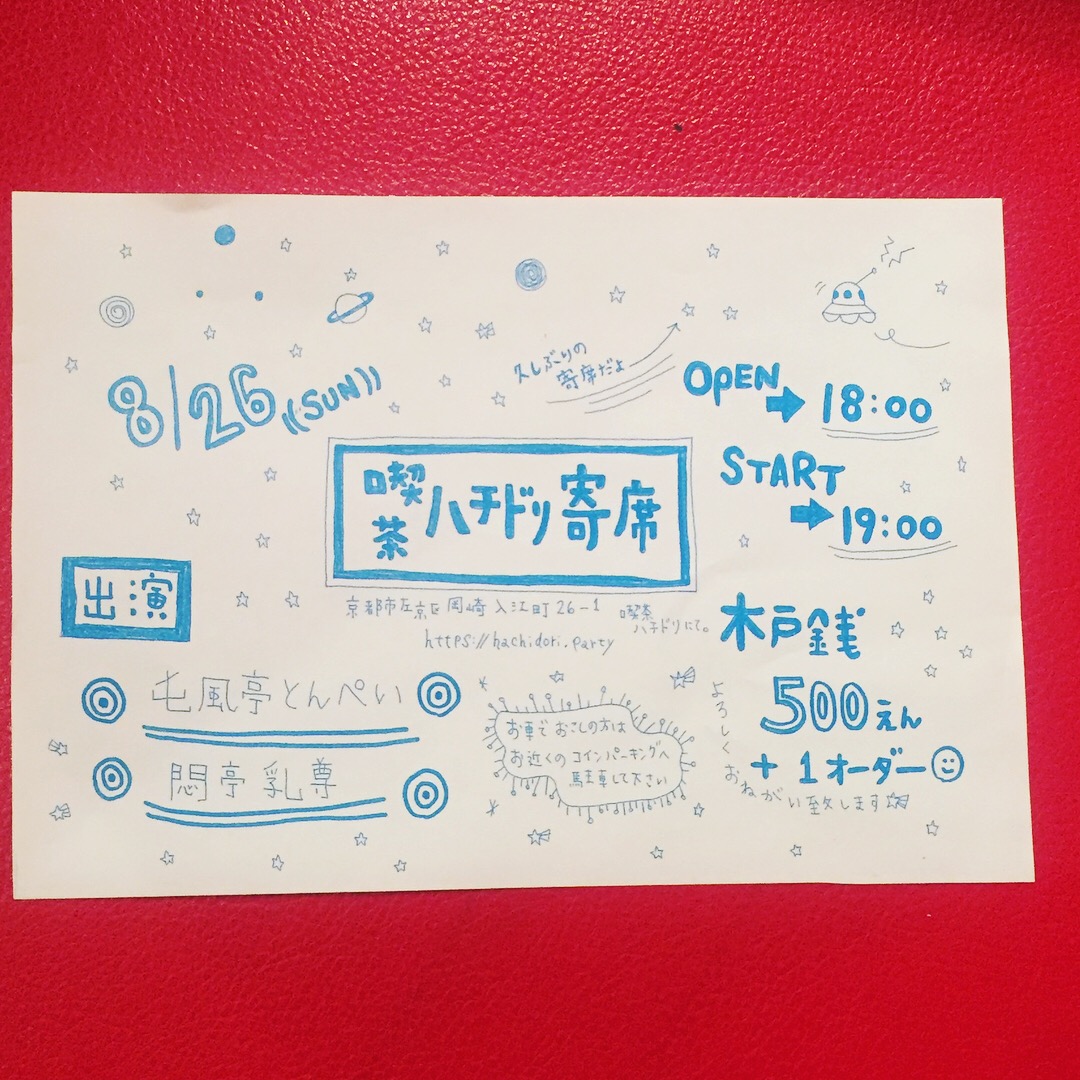 8/26 (SUN)
久しぶりの
寄席だよ
OPEN
18:00
START
19:00
喫茶
ハチドリ寄席
京都市左京区岡崎入江町26-1
喫茶
ハチドリにて。
https://hachidori.party
出演
屯風亭とんぺい
悶亭乳尊
お車でおこしの方は
お近くのコインパーキングへ
駐車して下さい
木戸銭
500えん
+1オーダー
よろしく
おねがい致します